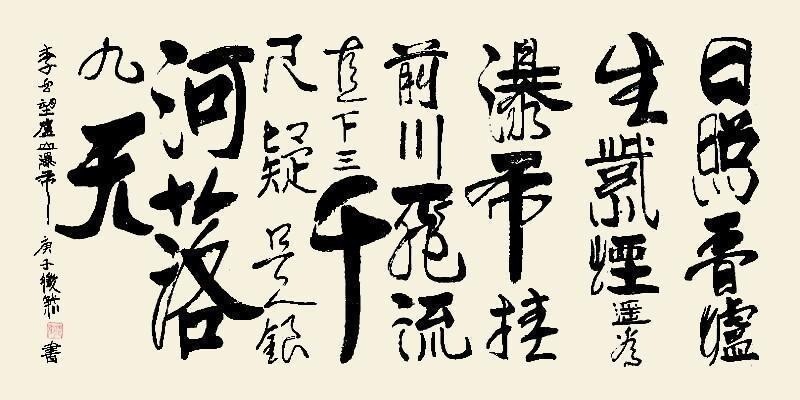 日照香爐
生紫煙遥看
瀑布挂
前川飛流
直下三千
尺疑是銀
河落
九天
李白望廬山瀑布 庚子 書